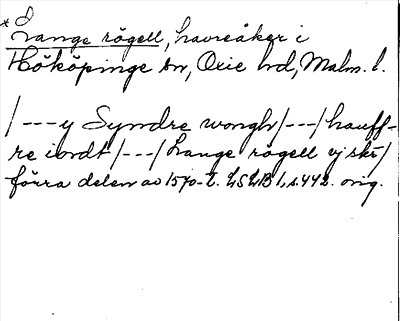 * Lange rögell, havreåker i
Hököpinge sn, Oxie hd, Malm. l.
/---y Syndre wongh/---/hauff-
re iordt/---/Lange rögell vj skr/
förra delen av 1570-t. LSLB 1, s. 442. orig.